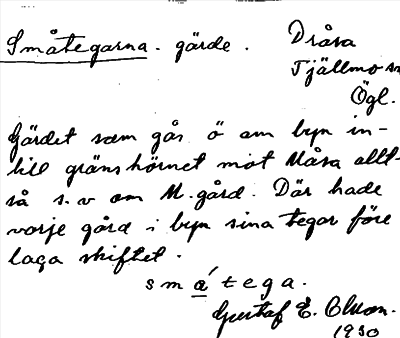 Småtegarna. gärde. Dråsa
Tjällmo sn
Ögl.
Gärdet som går ö om byn in-
till gränshörnet mot Måsa allt-
så s.v om M.gård. Där hade
varje gård i byn sina tegar före
laga skiftet.
småtega.
Gustaf E. Olsson.
1930